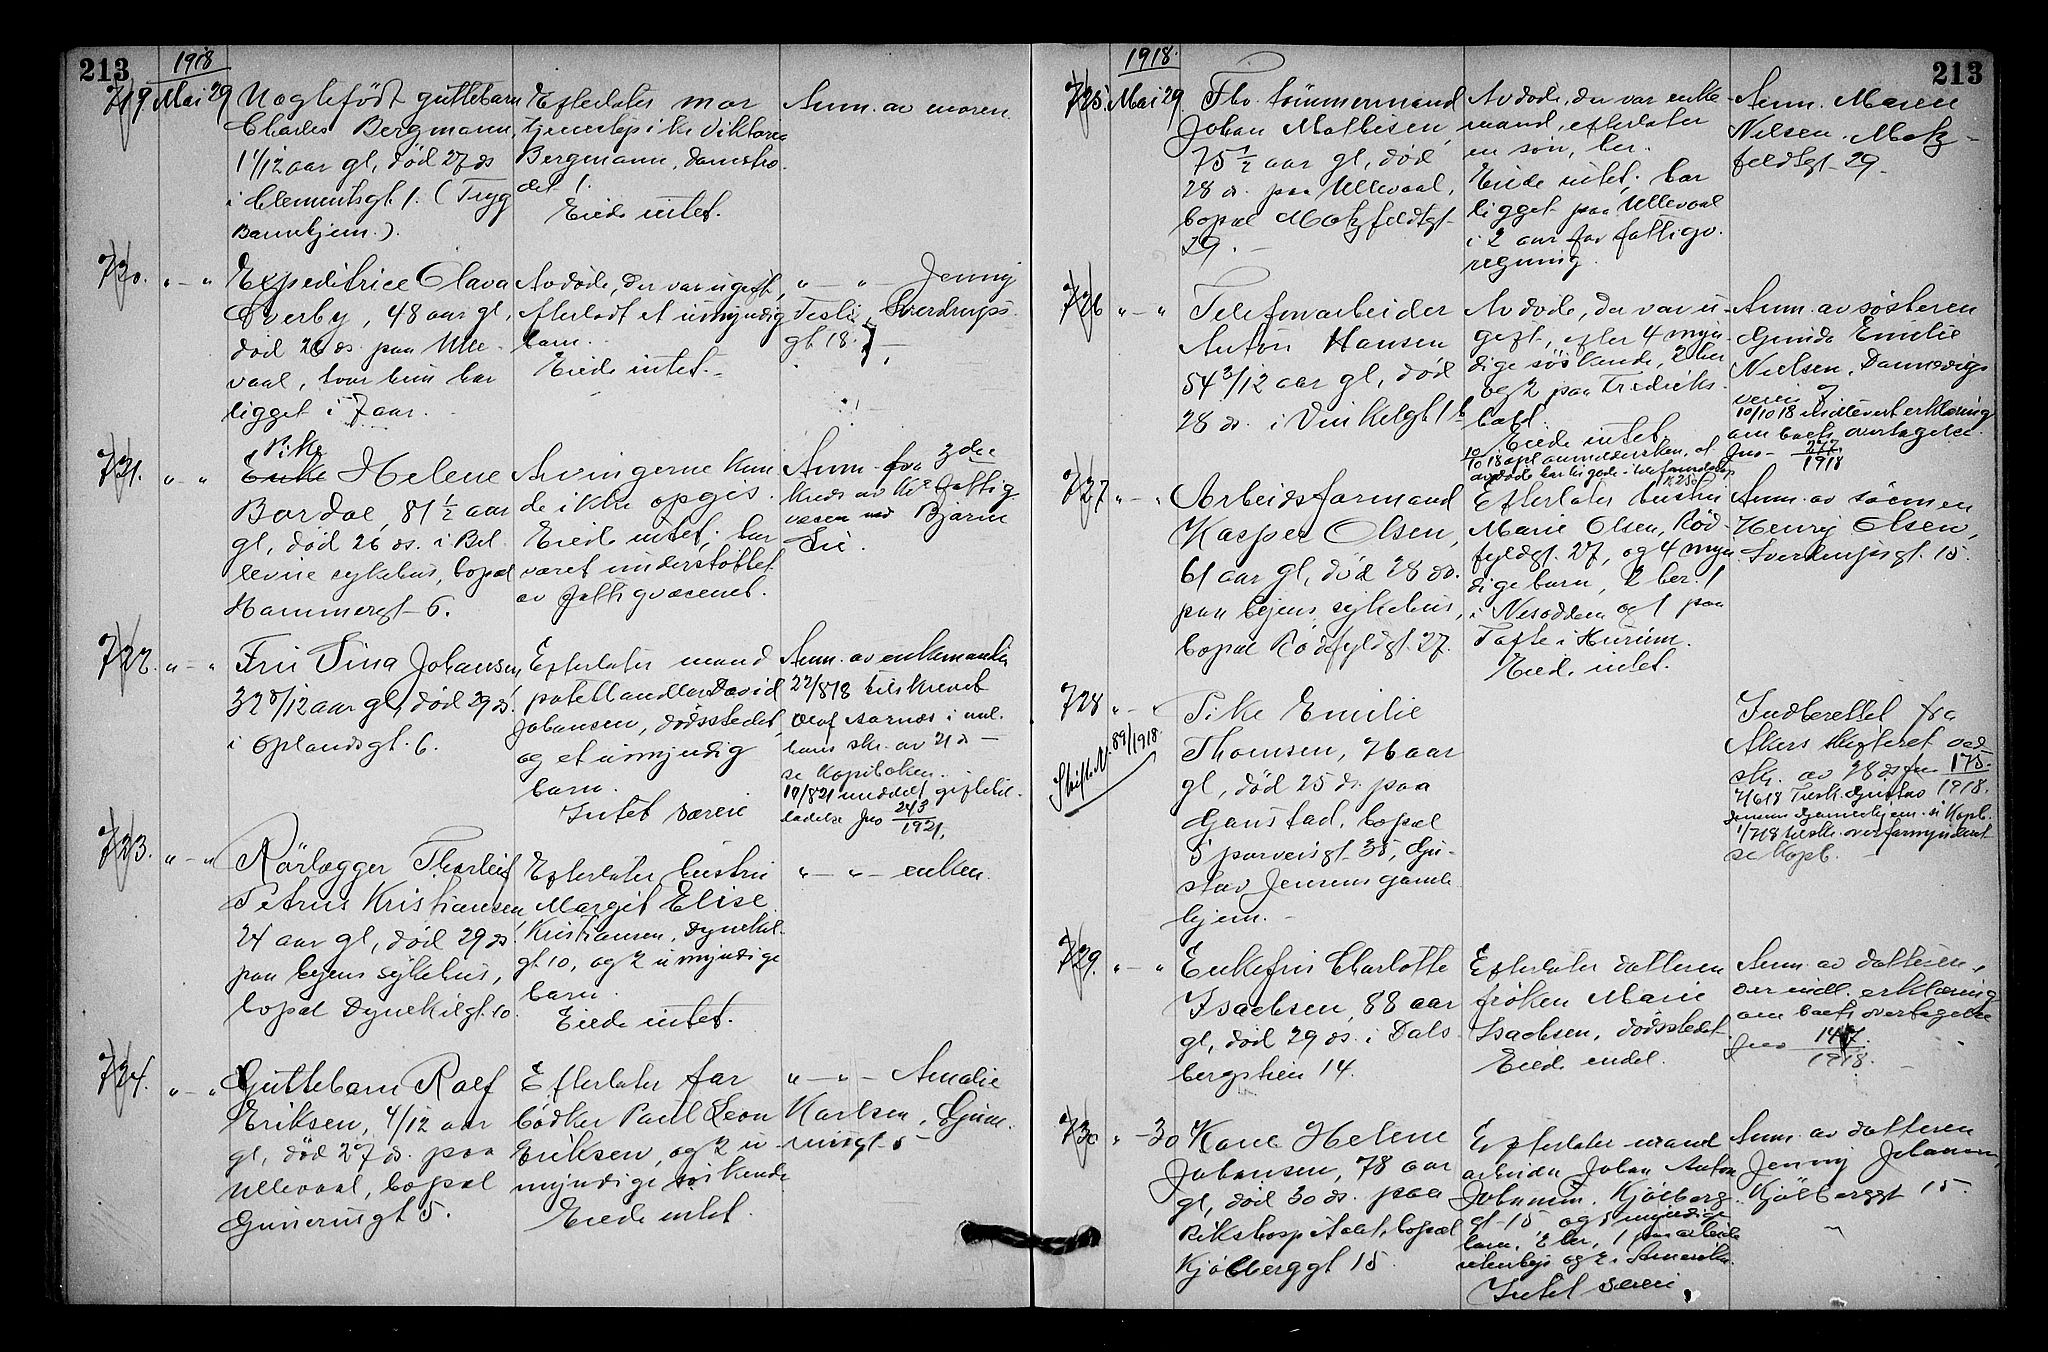 213
1918
719. Mai 29
Uegtefödt guttebarn
Charles Bergmann,
1 1/12 aar gl, död 27 ds
i Clementsgt. 1. (Tryg
Barnehjem.).
Efterlater mor
tjenestepike Viktoria
Bergmann, Damstræ
det 1.
Eiede intet.
Anm. av moren.
720. " — "
Expeditrice Olava
Överby, 48 aar gl,
död 26 ds. paa Ulle-
vaal, hvor hun har
ligget i 7 aar.
Avdöde, der var ugift,
efterlodt et umyndig
barn.
Eiede intet.
" — " — Jenny
Teslie, Sverdrups-
gt 18.
721. " — "
Pike
Enke Helene
Bordoe, 81 1/2 aar
gl, död 26 ds. i Bet-
levine sykehus, bopæl
Hammergt 6.
Arvingerne kun-
de ikke opgis.
Eiede intet, har
været understöttet
av fattigvæsenet.
Anm. fra 3die
kreds av Kr. fattig
væsen ved Bjarne
Lie.
722. " — "
Fru Sina Johansen,
32 8/12 aar gl, död 29 ds.
i Oplandsgt. 6.
Efterlater mand
David
Johansen, dödsstedet,
og et umyndig
barn.
Intet særeie
Anm. av enkemanden
22/8 18 tilskrevet
Olaf Aarnæs i anl.
hans skr. av 21 ds —
se Kopiboken.
10/8 21 meddelt giftetil-
ladelse Jno 243/1921.
723. " — "
Rörlægger Thorleif
Petrus Kristiansen,
24 aar gl, död 29 ds.
paa byens sykehus,
bopæl Dynekilgt. 10.
Efterlater hustru
Margit Elise
Kristiansen, Dynekil-
gt. 10, og 2 umyndige
barn.
Eiede intet.
" — " — enken.
724. " — "
Guttebarn Rolf
Eriksen, 4/12 aar
gl, död 27 ds. paa
Ullevaal, bopæl
Gunerusgt 5.
Efterlater far
bödker Paul Leon
Eriksen, og 2 u-
myndige söskende
Eiede intet.
" — " — Amalie
Karlsen, Gune-
rusgt 5
213
1918.
725. Mai 29
Fhv. tömmermand
Johan Mathisen,
75 1/2 aar gl, död
28 ds. paa Ullevaal,
bopæl Motzfeldtgt
29.
Avdöde, der var enke-
mand, efterlater
en sön, her.
Eiede intet, har
ligget paa Ullevaal
i 2 aar for fattigv.
regning.
Anm. Maren
Nilsen. Motz-
feldtgt. 29.
726 " — "
Telefonarbeider
Anton Hansen
54 3/12 aar gl, död
28 ds. i Vinkelgt 1 b
Avdöde, der var u-
gift, efter 4 myn-
dige söskende, 2 her
og 2 paa Fredriks-
hald.
Eiede intet
10/10 18 opl anmeldersken, at
avdöde har tilgode i telefonselskap
Anm. av søsteren
Gunda Emilie
Nielsen, Dannevigs
veien 7
10/10 18 utlevert erklæring
om boets overtagelse.
Jno 277/1918
727 " — "
Arbeidsformand
Kasper Olsen,
61 aar gl, död 28 ds.
paa byens sykehus,
bopæl Rödfyldgt. 27.
Efterlater hustru
Marie Olsen, Röd-
fyldgt. 27, og 4 myn-
dige barn, 2 her. 1
i Nesodden og 1 paa
Tofte i Hurum.
Eiede intet.
Anm. av sönnen
Henry Olsen,
Sverdrupsgt. 15.
728 " — "
Skifte N. 89/1918.
Pike Emilie
Thomsen, 46 aar
gl, död 25 ds. paa
Gaustad, bopæl
Sporveisgt 35, Gu-
stav Jensens gamle
hjem.
Indberettet fra
Akers skifteret ved
skr. av 28 ds Jno 175/1918.
4/6 18 Tilsk. Gustav
Jensens Gamlehjem. se Kopb.
1/7 18 tilskr. overformynderiet
se Kopb.
729. " — "
Enkefru Charlotte
Isachsen, 88 aar
gl, död 29 ds. i Dals-
bergstien 14.
Efterlater datteren
fröken Marie
Isachsen, dödsstedet
Eiede endel.
Anm. av datteren,
der indl. erklæring
om boets overtagelse
Jno 147/1918.
730 " — 30
Kone Helene
Johansen, 78 aar
gl, död 30 ds. paa
Rikshospitalet, bopæl
Kjölberggt 15.
Efterlater mand
arbeider Johan Anton
Johansen. Kjölberg-
gt 15, og 5 myndige
barn, 2 her, 1 paa arbeide
utenbys og 2 i Amerika.
Intet særeie.
Anm. av datteren
Jenny Johansen,
Kjölberggt 15.